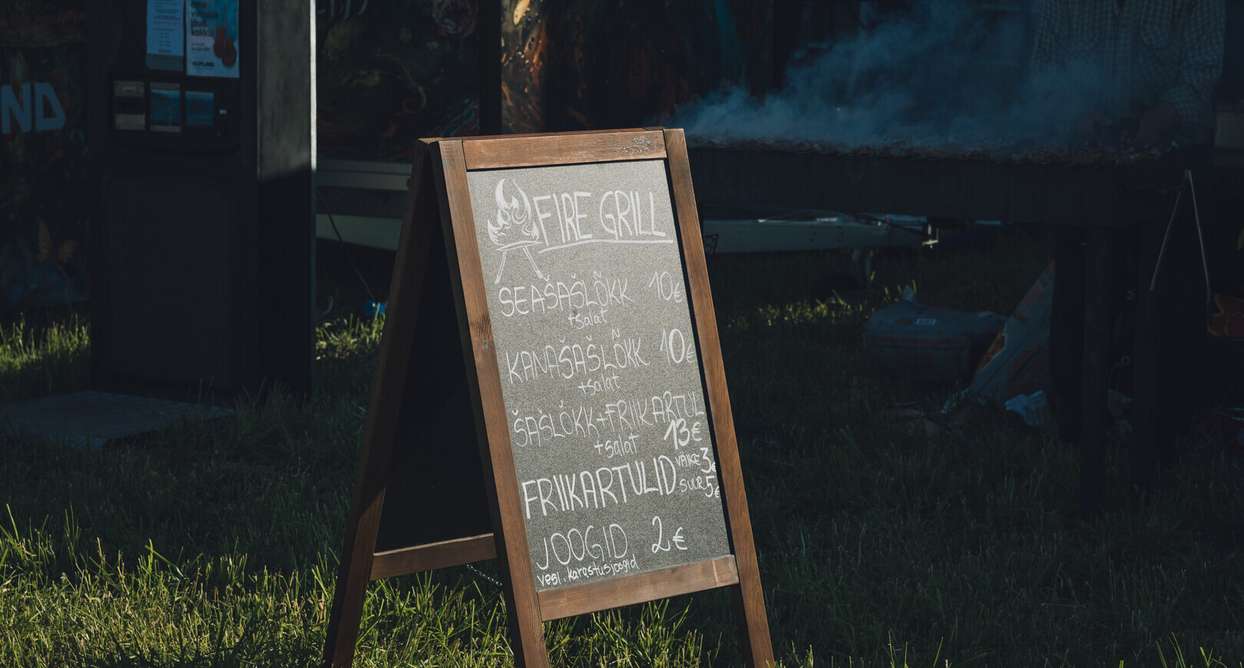 ND
FIRE GRILL
SEAŠAŠLÕKK 10€
+salat
KANAŠAŠLÕKK 10€
+salat
ŠAŠLÕKK+FRIIKARTUL
+salat 13€
FRIIKARTULID VÄIKE 3€
SUUR 5€
JOOGID 2€
vesi, karastusjoogid